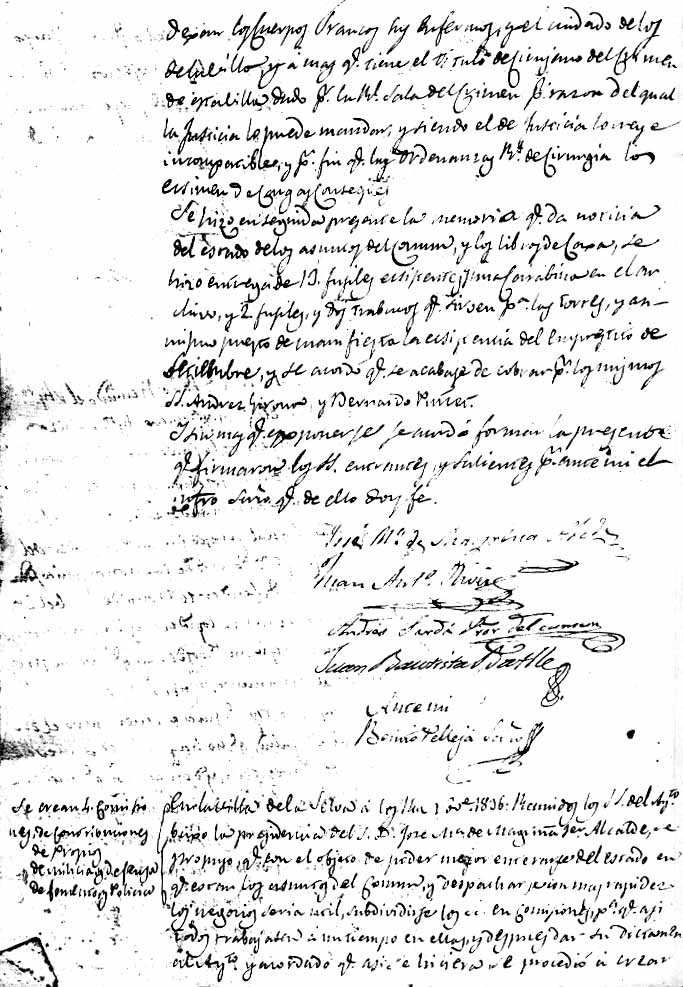 dejar los Cuerpos francos sus enfermos, y el cuidado de los
de la Villa, y a mas q.e tiene el Titulo de Cirujano del Crimen
de esta Villa dado p.r la R.l Sala del Crimen p.r razon del qual
la Justicia lo puede mandar, y siendo el de Justicia
incompatible, y p.r fin q.e las Ordenanzas R.s de Cirugia los
ecsimen de Cargas Consegiles
Se hizo en seguida presente la memoria q.e da noticia
del estado de los asuntos del Comun, y los libros de Casa, se
hizo entrega de 13 fusiles ecsistentes, una Carabina en el ar
chivo, y 2 fusiles, y dos trabucos q.e sirven p.a las Torres, y an-
mismo puesto de manifiesto la ecsistencia del emprestito de
y se acordó q.e se acabase de cobrar p.r los mismos
SS. Andres y Bernardo
Y sin mas q.e esponerse se acordó formar la presente
q.e firmaron los SS. entrantes, y salientes p.r ante mi el
infro Srio. q.e de ello doy fe.
José M.a de Magriña
Juan Ant.o
Andrés Sardá Pror del comun
Juan Bautista Batlle
Ante mi
Benito Pelleja Srio
Se crean 4 Comisio
nes, de Contribuciones
de Propios
de milicia y defensa
de fomento y Policia
En la Villa de la Selva á los 1836. Reunidos los SS. del Ay.to
bajo la presidencia del S. D. Jose M.a de Magriña 1er Alcalde, se
propuso, q.e con el objeto de poder mejor enterarse del estado en
q.e estan los asuntos del Comun, y despachar con mas rapidez
los negocios seria util, subdividirse los en Comisiones, p.a q.e asi
todos trabajasen á un tiempo en ellos, y despues dar su dictamen
al Ay.to y acordado q.e asi se hiciera se procedió á crear